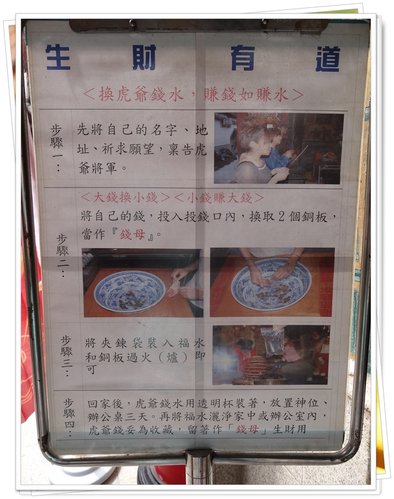 生財有道
<換虎爺錢水，賺錢如賺水>
步驟一：
先將自己的名字、地
址、祈求願望，稟告虎
爺將軍。
<大錢換小錢><小錢賺大錢>
步驟二：
將自己的錢，投入投錢口內，換取２個銅板，
當作『錢母』。
步驟三：
將夾鍊袋裝入福水
和銅板過火（爐）即
可
步驟四：
回家後，虎爺錢水用透明杯裝著，放置神位、
辦公桌三天。再將福水灑淨家中或辦公室內，
虎爺錢妥為收藏，留著作「錢母」生財用